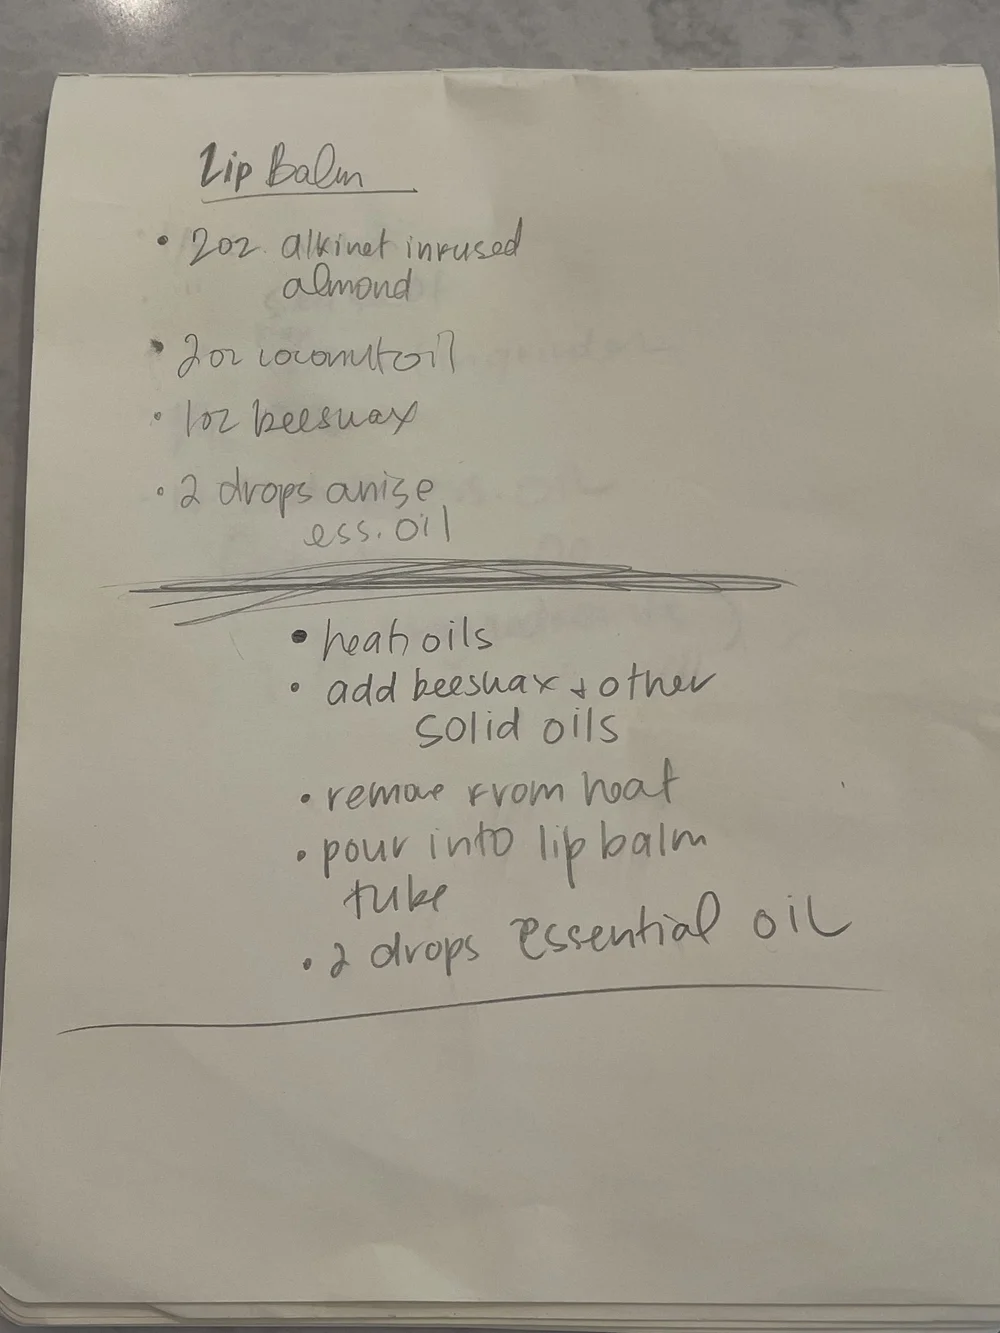 Lip Balm
• 2oz. alkinet infused
almond
• 2oz coconut oil
• 1oz beeswax
• 2 drops anise
ess. oil
• heat oils
• add beeswax + other
solid oils
• remove from heat
• pour into lip balm
tube
• 2 drops essential oil